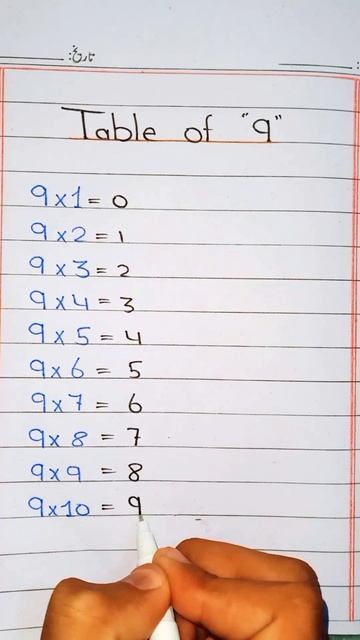 تاریخ:
Table of "9"
9x1 = 0
9x2 = 1
9x3 = 2
9x4 = 3
9x5 = 4
9x6 = 5
9x7 = 6
9x8 = 7
9x9 = 8
9x10 = 9